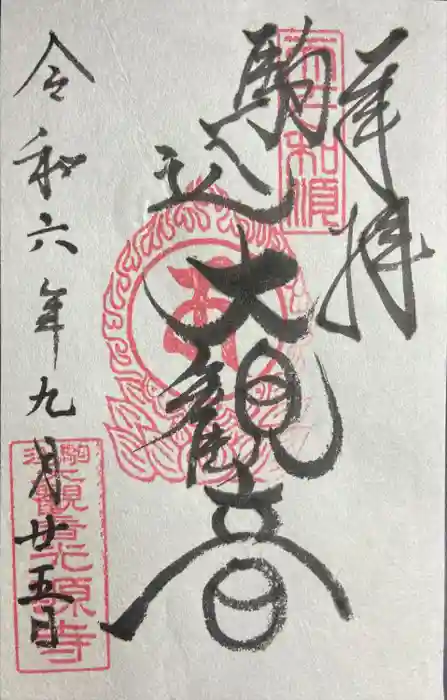 奉拝
天下和順
駒込
大観音
令和六年九月廿五日
駒込
大観音光源寺